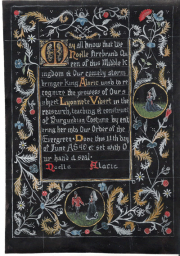 May all know that We
Nadia Firebrand Qu
een of this Middle K
ingdom & Our comely storm
bringer King Alaric used to re
cognize the prowess of our s
ubject Lynnette Vivert in the
research, teaching & construct
of Burgundian Costume by ent
ering her into Our Order of the
Evergreen. Done this 11th day
of June AS 40 & set with O
ur hand & seal.
Nadia Alaric